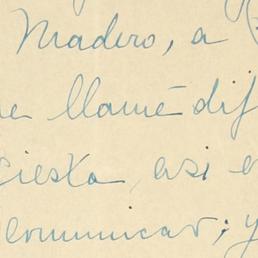 Madero, a
me llamé dif
ciesta, asi e
comunicar; y